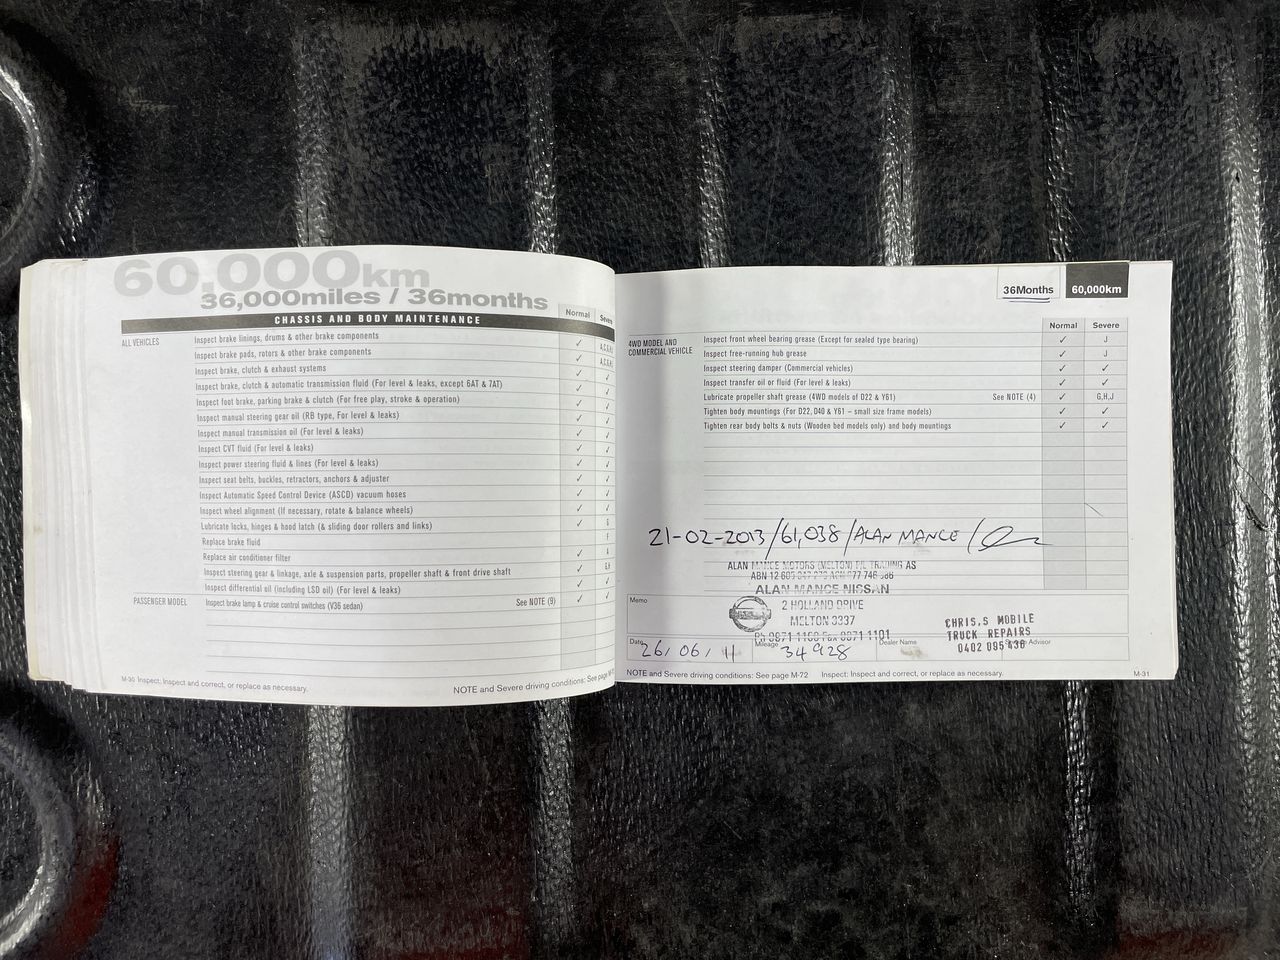 60,000km
36,000miles / 36months
CHASSIS AND BODY MAINTENANCE
Normal Severe
ALL VEHICLES
Inspect brake linings, drums & other brake components ✓ A,C,G,H,I
Inspect brake pads, rotors & other brake components ✓ A,C,G,H,I
Inspect brake, clutch & exhaust systems ✓ ✓
Inspect brake, clutch & automatic transmission fluid (For level & leaks, except 6AT & 7AT) ✓ ✓
Inspect foot brake, parking brake & clutch (For free play, stroke & operation) ✓ ✓
Inspect manual steering gear oil (RB type, For level & leaks) ✓ ✓
Inspect manual transmission oil (For level & leaks) ✓ ✓
Inspect CVT fluid (For level & leaks) ✓ ✓
Inspect power steering fluid & lines (For level & leaks) ✓ ✓
Inspect seat belts, buckles, retractors, anchors & adjuster ✓ ✓
Inspect Automatic Speed Control Device (ASCD) vacuum hoses ✓ ✓
Inspect wheel alignment (If necessary, rotate & balance wheels) ✓ ✓
Lubricate locks, hinges & hood latch (& sliding door rollers and links) ✓ G
Replace brake fluid F
Replace air conditioner filter ✓ A
Inspect steering gear & linkage, axle & suspension parts, propeller shaft & front drive shaft ✓ G,H
Inspect differential oil (including LSD oil) (For level & leaks) ✓ ✓
PASSENGER MODEL Inspect brake lamp & cruise control switches (V36 sedan) See NOTE (9) ✓ ✓
M-30 Inspect: Inspect and correct, or replace as necessary.
NOTE and Severe driving conditions: See page M-72
36Months 60,000km
Normal Severe
4WD MODEL AND
COMMERCIAL VEHICLE
Inspect front wheel bearing grease (Except for sealed type bearing) ✓ J
Inspect free-running hub grease ✓ J
Inspect steering damper (Commercial vehicles) ✓ ✓
Inspect transfer oil or fluid (For level & leaks) ✓ ✓
Lubricate propeller shaft grease (4WD models of D22 & Y61) See NOTE (4) ✓ G,H,J
Tighten body mountings (For D22, D40 & Y61 – small size frame models) ✓ ✓
Tighten rear body bolts & nuts (Wooden bed models only) and body mountings ✓ ✓
21-02-2013/61,038/ALAN MANCE/
ALAN MANCE MOTORS (MELTON) P/L TRADING AS
ABN 12 605
ALAN MANCE NISSAN
2 HOLLAND DRIVE
MELTON 3337
Memo
CHRIS,S MOBILE
TRUCK REPAIRS
0402 095 436
Date 26/06/11
Mileage 34928
Dealer Name
Advisor
NOTE and Severe driving conditions: See page M-72 Inspect: Inspect and correct, or replace as necessary.
M-31